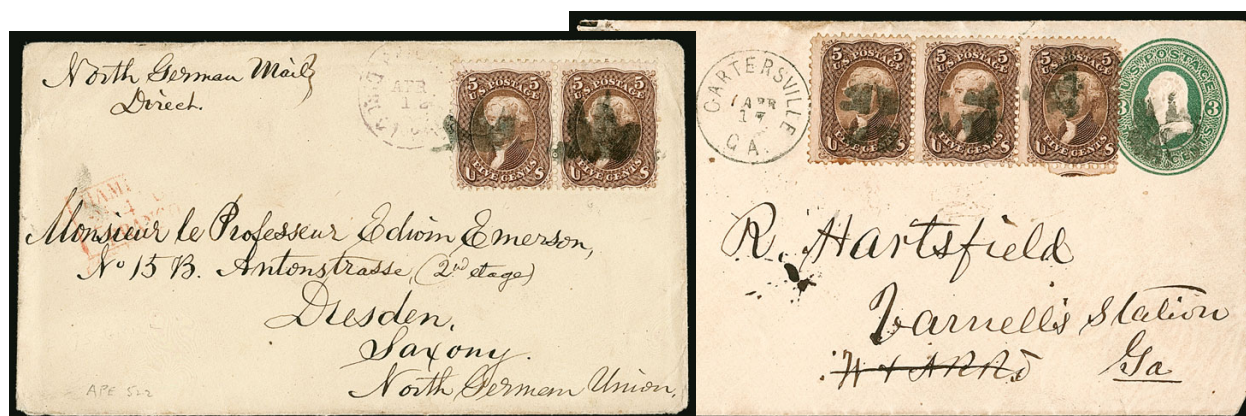 North German Mail
Direct.
APR
12
5 5
U.S. POSTAGE
FIVE CENTS
U S
5 5
U.S. POSTAGE
FIVE CENTS
U S
Monsieur le Professeur Edwin Emerson,
No 15 B. Antonstrasse, (2nd etage)
Dresden,
Saxony.
North German Union,
APE 522
CARTERSVILLE
APR
17
GA.
5 5
U.S. POSTAGE
FIVE CENTS
U S
5 5
U.S. POSTAGE
FIVE CENTS
U S
5 5
U.S. POSTAGE
FIVE CENTS
U S
U.S. POSTAGE
3 3
CENTS
R. Hartsfield
Varnell's Station
Ga